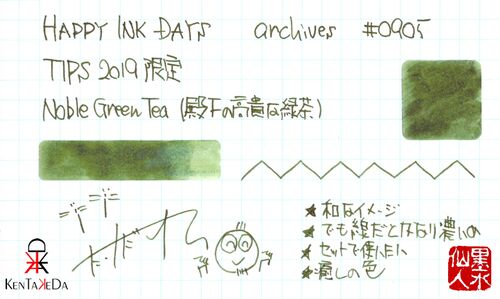 HAPPY INK DAYS archives #0905
TIPS 2019 限定
Noble Green Tea (殿下の高貴な緑茶)
★ 和なイメージ
★ でも線だとかなり濃いめ
★ セットで使いたい
★ 癒しの色
KENTAKEDA
墨水仙人